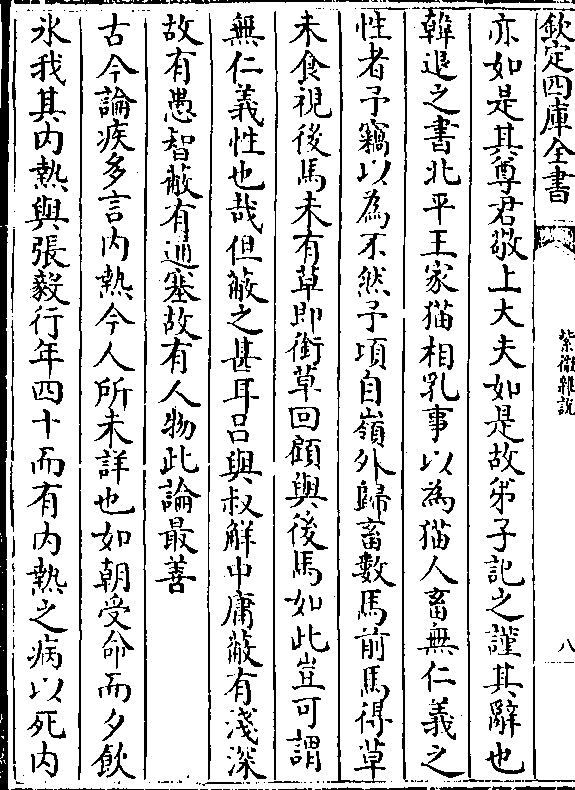 欽定四庫全書
紫微雜說
八
亦如是其尊君敬上大夫如是故弟子記之謹其辭也
韓退之書北平王家猫相乳事以為猫人畜無仁義之
性者予竊以為不然予頃自嶺外歸畜數馬前馬得草
未食視後馬未有草即銜草回顧與後馬如此豈可謂
無仁義性也哉但蔽之甚耳吕與叔解中庸蔽有淺深
故有愚智蔽有通塞故有人物此論最善
古今論疾多言内熱今人所未詳也如朝受命而夕飲
氷我其内熱與張毅行年四十而有内熱之病以死内